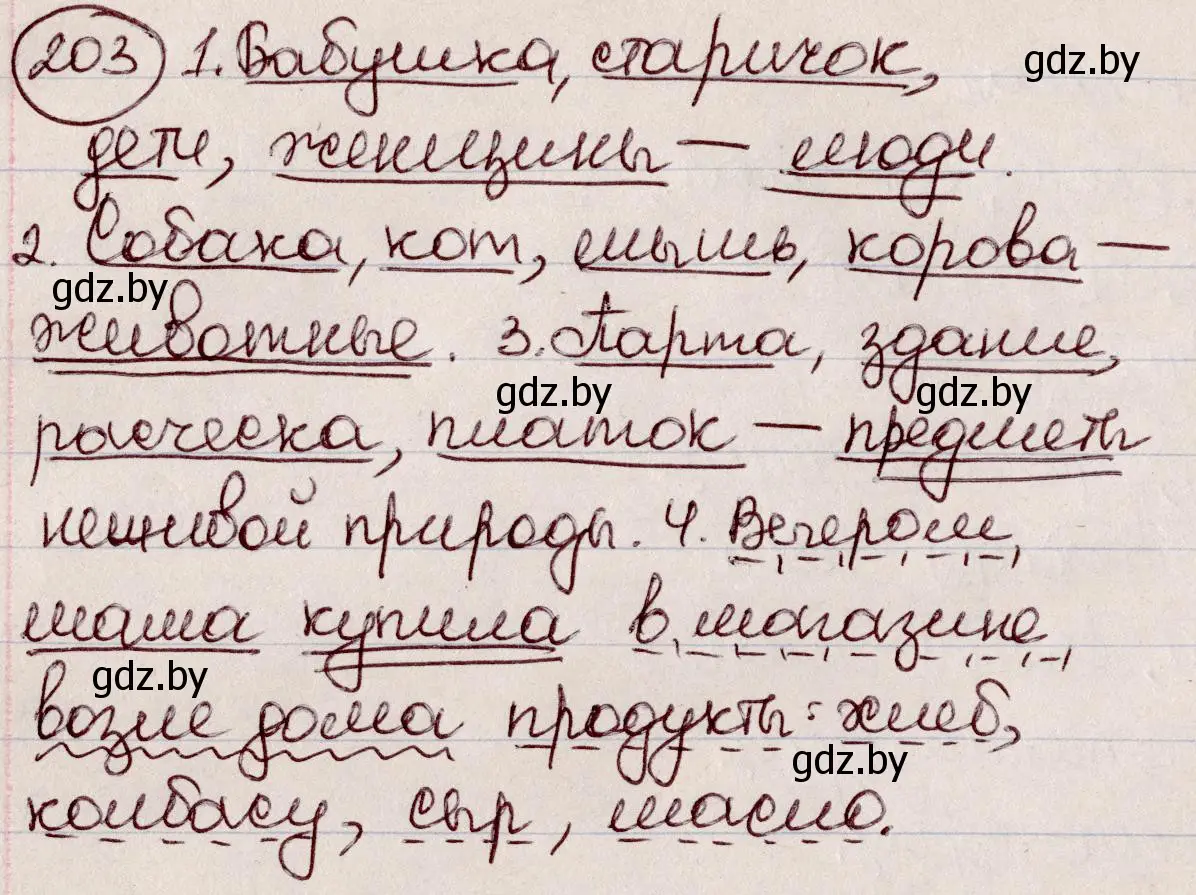 203 1. Бабушка, старичок, gdz.by
дети, женщины — люди.
2. Собака, кот, мышь, корова —
gdz.by
животные. 3. Парта, здание,
gdz.by gdz.by
расческа, платок — предметы
неживой природы. 4. Вечером
мама купила в магазине
gdz.by
возле дома продукты: хлеб,
gdz.by
колбасу, сыр, масло.